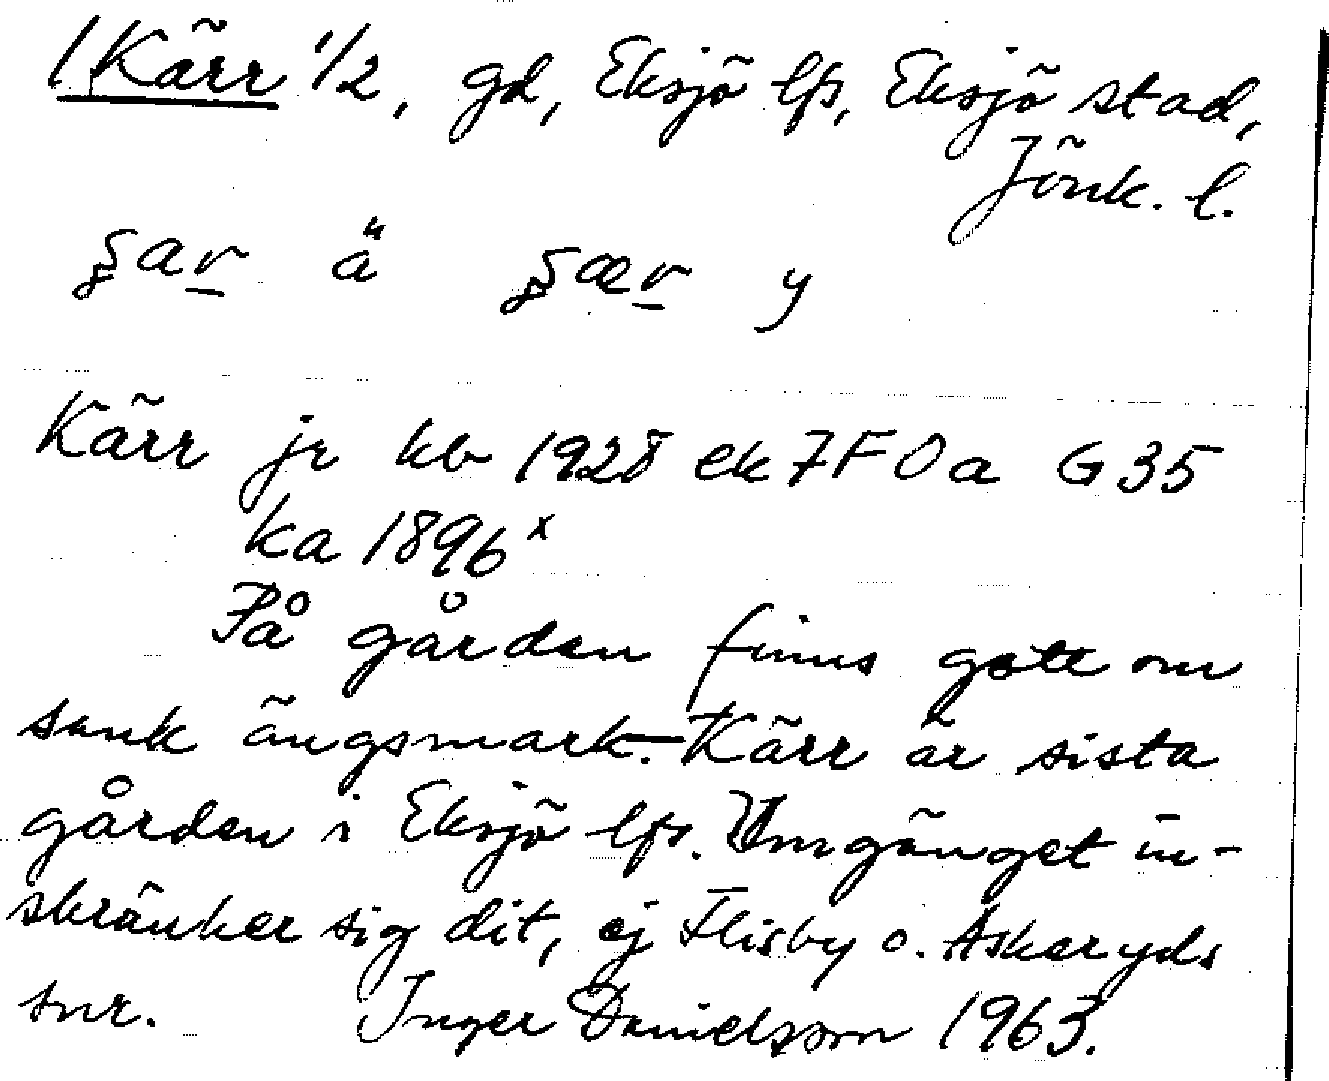 1 Kärr 1/2, gd, Eksjö lfs, Eksjö stad,
Jönk. l.
ʂar ä ʂær y
Kärr jr kb 1928 ek 7F 0a G35
ka 1896 x
På gården finns gott om
sank ängsmark. – Kärr är sista
gården i Eksjö lfs. Umgänget in-
skränker sig dit, ej Flisby o. Askeryds
snr. Inger Danielsson 1963.